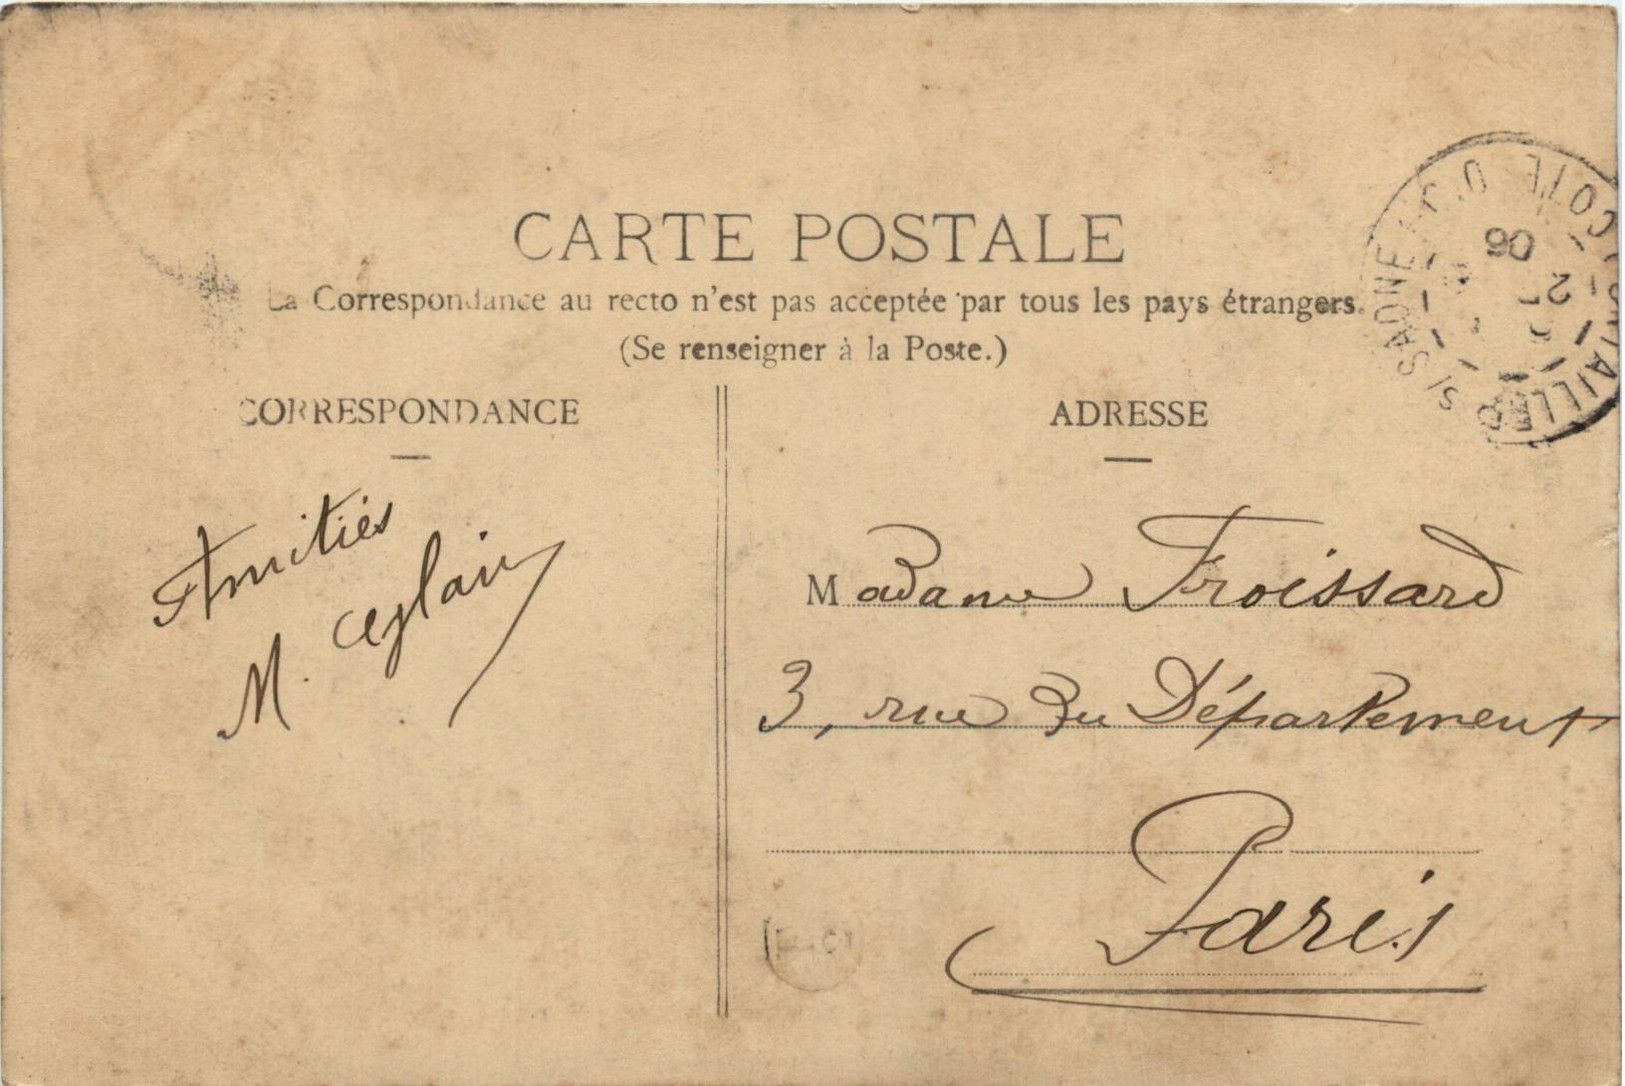 CARTE POSTALE
La Correspondance au recto n'est pas acceptée par tous les pays étrangers.
(Se renseigner à la Poste.)
CORRESPONDANCE
Amitiés
M.
ADRESSE
Madame Froissard
3, rue du Département
Paris
SAONE
06